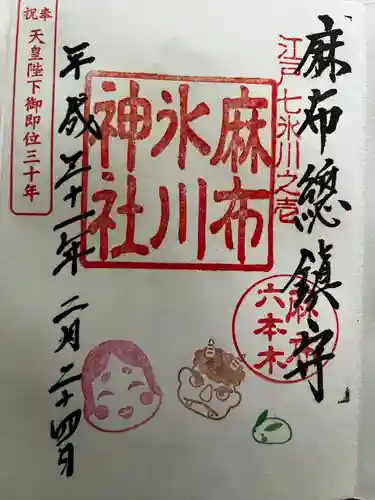 麻布總鎮守
江戸七氷川之壱
麻布
氷川
神社
麻布
六本木
平成三十一年 二月二十四日
奉祝
天皇陛下御即位三十年